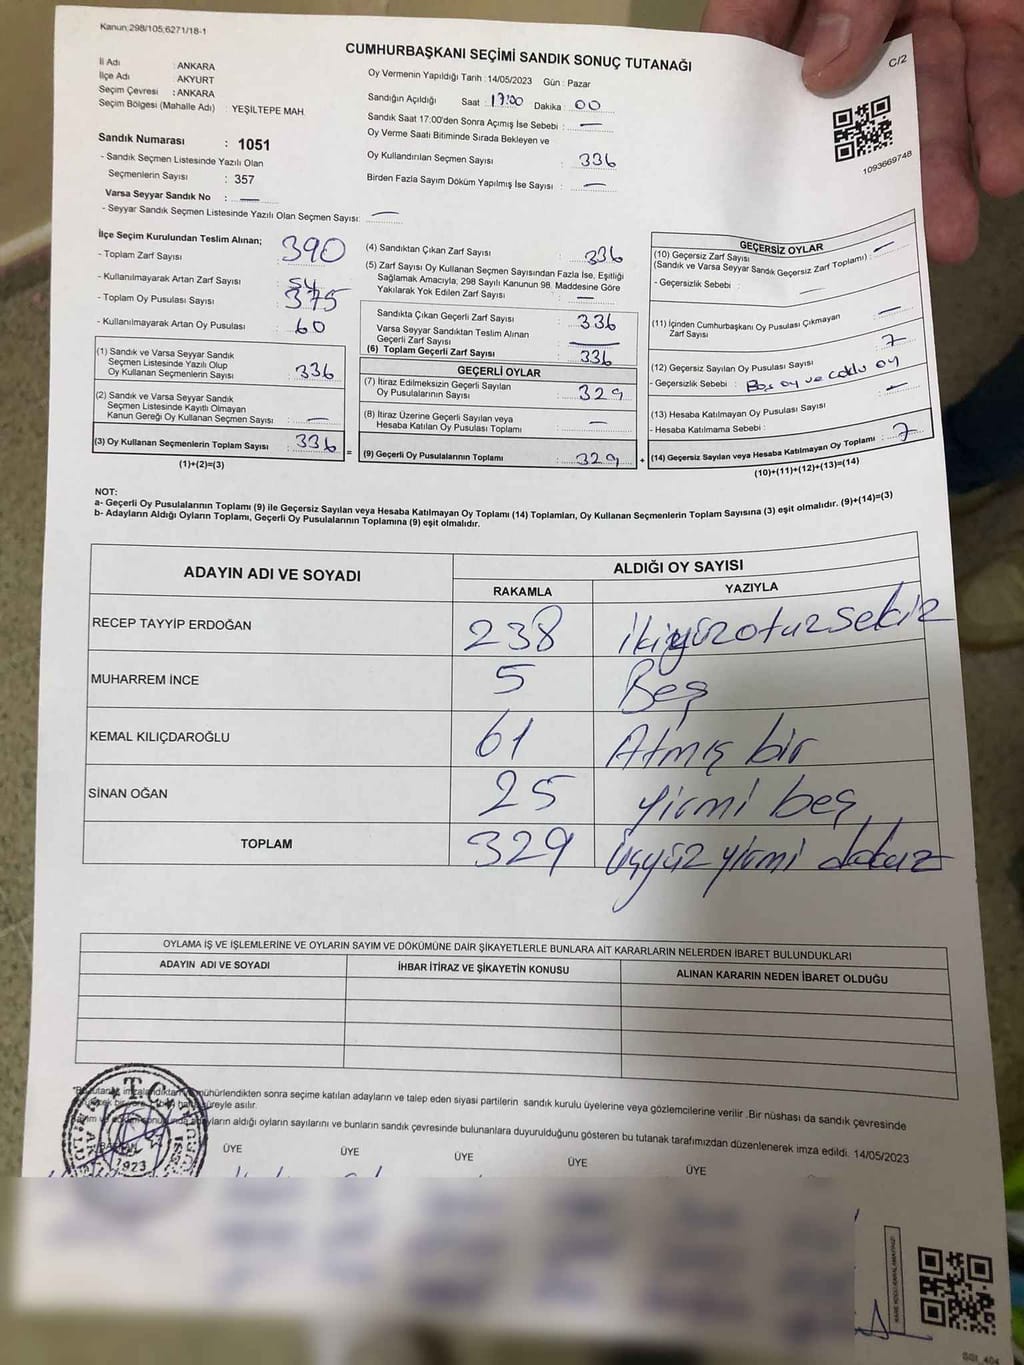 Kanun;298/105;6271/18-1
CUMHURBAŞKANI SEÇİMİ SANDIK SONUÇ TUTANAĞI
C/2
İl Adı : ANKARA
İlçe Adı : AKYURT
Seçim Çevresi : ANKARA
Seçim Bölgesi (Mahalle Adı) : YEŞİLTEPE MAH.
Oy Vermenin Yapıldığı Tarih :14/05/2023 Gün : Pazar
Sandığın Açıldığı Saat : 17:00 Dakika : 00
Sandık Saat 17:00'den Sonra Açımış İse Sebebi : —
Oy Verme Saati Bitiminde Sırada Bekleyen ve
Oy Kullandırılan Seçmen Sayısı : 336
Birden Fazla Sayım Döküm Yapılmış İse Sayısı : —
1093669748
Sandık Numarası : 1051
- Sandık Seçmen Listesinde Yazılı Olan
Seçmenlerin Sayısı : 357
Varsa Seyyar Sandık No : —
- Seyyar Sandık Seçmen Listesinde Yazılı Olan Seçmen Sayısı: —
İlçe Seçim Kurulundan Teslim Alınan;
- Toplam Zarf Sayısı : 390
- Kullanılmayarak Artan Zarf Sayısı : 54
- Toplam Oy Pusulası Sayısı : 375
- Kullanılmayarak Artan Oy Pusulası : 60
(1) Sandık ve Varsa Seyyar Sandık
Seçmen Listesinde Yazılı Olup
Oy Kullanan Seçmenlerin Sayısı : 336
(2) Sandık ve Varsa Seyyar Sandık
Seçmen Listesinde Kayıtlı Olmayan
Kanun Gereği Oy Kullanan Seçmen Sayısı : —
(3) Oy Kullanan Seçmenlerin Toplam Sayısı : 336
(1)+(2)=(3)
(4) Sandıktan Çıkan Zarf Sayısı : 336
(5) Zarf Sayısı Oy Kullanan Seçmen Sayısından Fazla İse, Eşitliği
Sağlamak Amacıyla; 298 Sayılı Kanunun 98. Maddesine Göre
Yakılarak Yok Edilen Zarf Sayısı : —
Sandıkta Çıkan Geçerli Zarf Sayısı : 336
Varsa Seyyar Sandıktan Teslim Alınan
Geçerli Zarf Sayısı : —
(6) Toplam Geçerli Zarf Sayısı : 336
GEÇERLİ OYLAR
(7) İtiraz Edilmeksizin Geçerli Sayılan
Oy Pusulalarının Sayısı : 329
(8) İtiraz Üzerine Geçerli Sayılan veya
Hesaba Katılan Oy Pusulası Toplamı : —
= (9) Geçerli Oy Pusulalarının Toplamı : 329 +
GEÇERSİZ OYLAR
(10) Geçersiz Zarf Sayısı
(Sandık ve Varsa Seyyar Sandık Geçersiz Zarf Toplamı) : —
- Geçersizlik Sebebi : —
(11) İçinden Cumhurbaşkanı Oy Pusulası Çıkmayan
Zarf Sayısı : —
(12) Geçersiz Sayılan Oy Pusulası Sayısı : 7
- Geçersizlik Sebebi : Boş oy ve çoklu oy
(13) Hesaba Katılmayan Oy Pusulası Sayısı : —
- Hesaba Katılmama Sebebi :
(14) Geçersiz Sayılan veya Hesaba Katılmayan Oy Toplamı : 7
(10)+(11)+(12)+(13)=(14)
NOT:
a- Geçerli Oy Pusulalarının Toplamı (9) ile Geçersiz Sayılan veya Hesaba Katılmayan Oy Toplamı (14) Toplamları, Oy Kullanan Seçmenlerin Toplam Sayısına (3) eşit olmalıdır. (9)+(14)=(3)
b- Adayların Aldığı Oyların Toplamı, Geçerli Oy Pusulalarının Toplamına (9) eşit olmalıdır.
ADAYIN ADI VE SOYADI
ALDIĞI OY SAYISI
RAKAMLA YAZIYLA
RECEP TAYYİP ERDOĞAN 238 ikiyüzotuzsekiz
MUHARREM İNCE 5 Beş
KEMAL KILIÇDAROĞLU 61 Atmış bir
SİNAN OĞAN 25 yirmi beş
TOPLAM 329 üçyüz yirmi dokuz
OYLAMA İŞ VE İŞLEMLERİNE VE OYLARIN SAYIM VE DÖKÜMÜNE DAİR ŞİKAYETLERLE BUNLARA AİT KARARLARIN NELERDEN İBARET BULUNDUKLARI
ADAYIN ADI VE SOYADI İHBAR İTİRAZ VE ŞİKAYETİN KONUSU ALINAN KARARIN NEDEN İBARET OLDUĞU
mühürlendikten sonra seçime katılan adayların ve talep eden siyasi partilerin sandık kurulu üyelerine veya gözlemcilerine verilir .Bir nüshası da sandık çevresinde
süreyle asılır.
adayların aldığı oyların sayılarını ve bunların sandık çevresinde bulunanlara duyurulduğunu gösteren bu tutanak tarafımızdan düzenlenerek imza edildi. 14/05/2023
T.C.
1923
BAŞKAN ÜYE ÜYE ÜYE ÜYE ÜYE